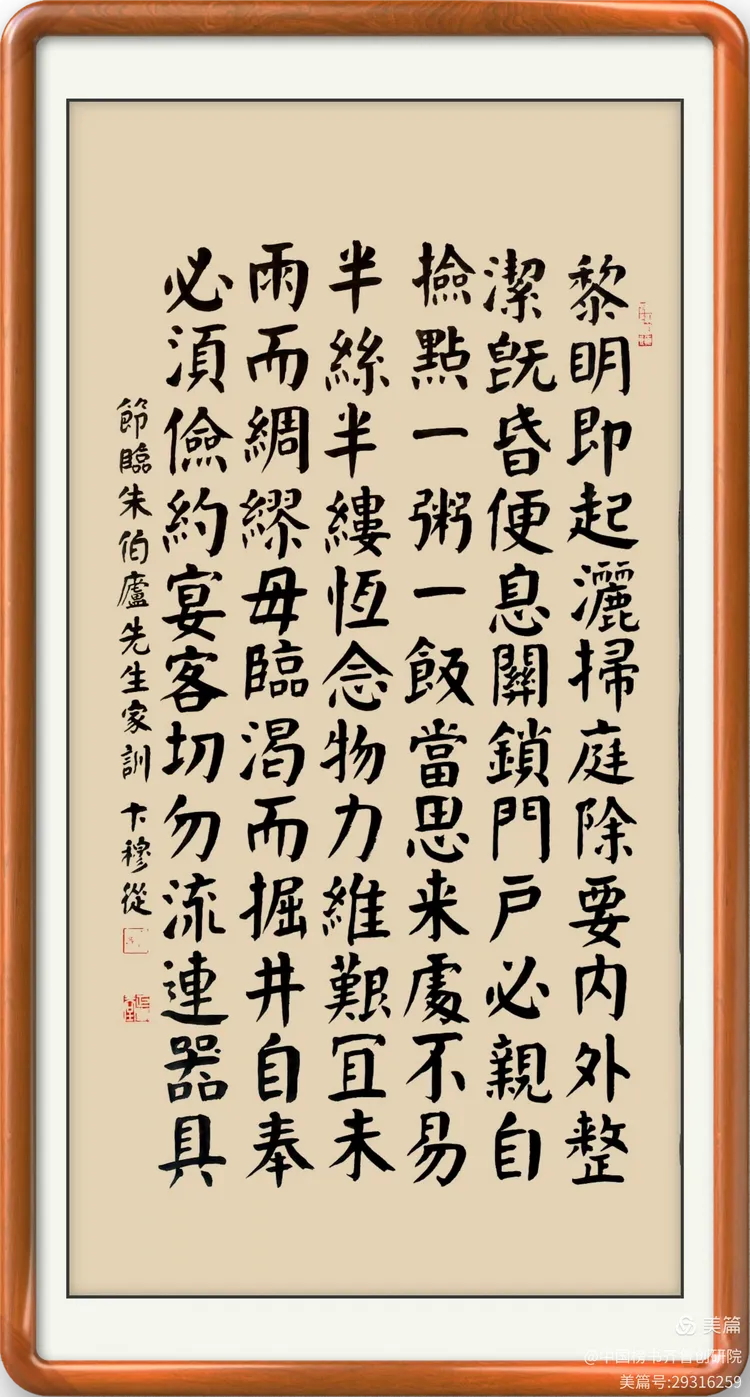 黎明即起灑掃庭除要内外整
潔既昏便息關鎖門戶必親自
撿點一粥一飯當思来處不易
半絲半縷恆念物力維艱宜未
雨而綢繆毋臨渴而掘井自奉
必須儉約宴客切勿流連器具
節臨朱伯廬先生家訓 大穆從
美篇
@中国榜书齐鲁创研院
美篇号:29316259